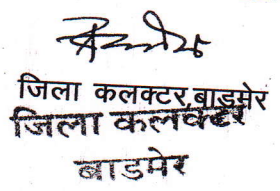 जिला कलक्टर, बाड़मेर
जिला कलक्टर
बाडमेर